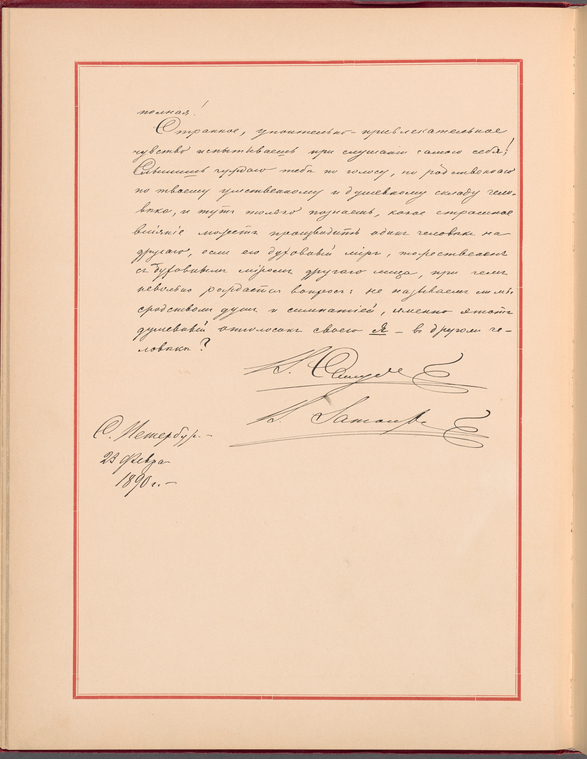 полная!
Странное, упоительно-привлекательное
чувство испытываешь при слушании самого себя!
Слышишь чуждаго тебѣ по голосу, но родственнаго
по твоему умственному и душевному складу чело-
вѣка, и тутъ только познаешь, какое страшное
вліяніе можетъ производить одинъ человѣкъ на
другаго, если его духовный міръ, тождествененъ
съ духовнымъ міромъ другаго лица, при чемъ
невольно рождается вопросъ: не называемъ ли мы
сродствомъ душъ и симпатіей, именно этотъ
душевный отголосокъ своего Я – въ другомъ че-
ловѣкѣ?
С. Петербур.–
23 Февра
1890 г.–